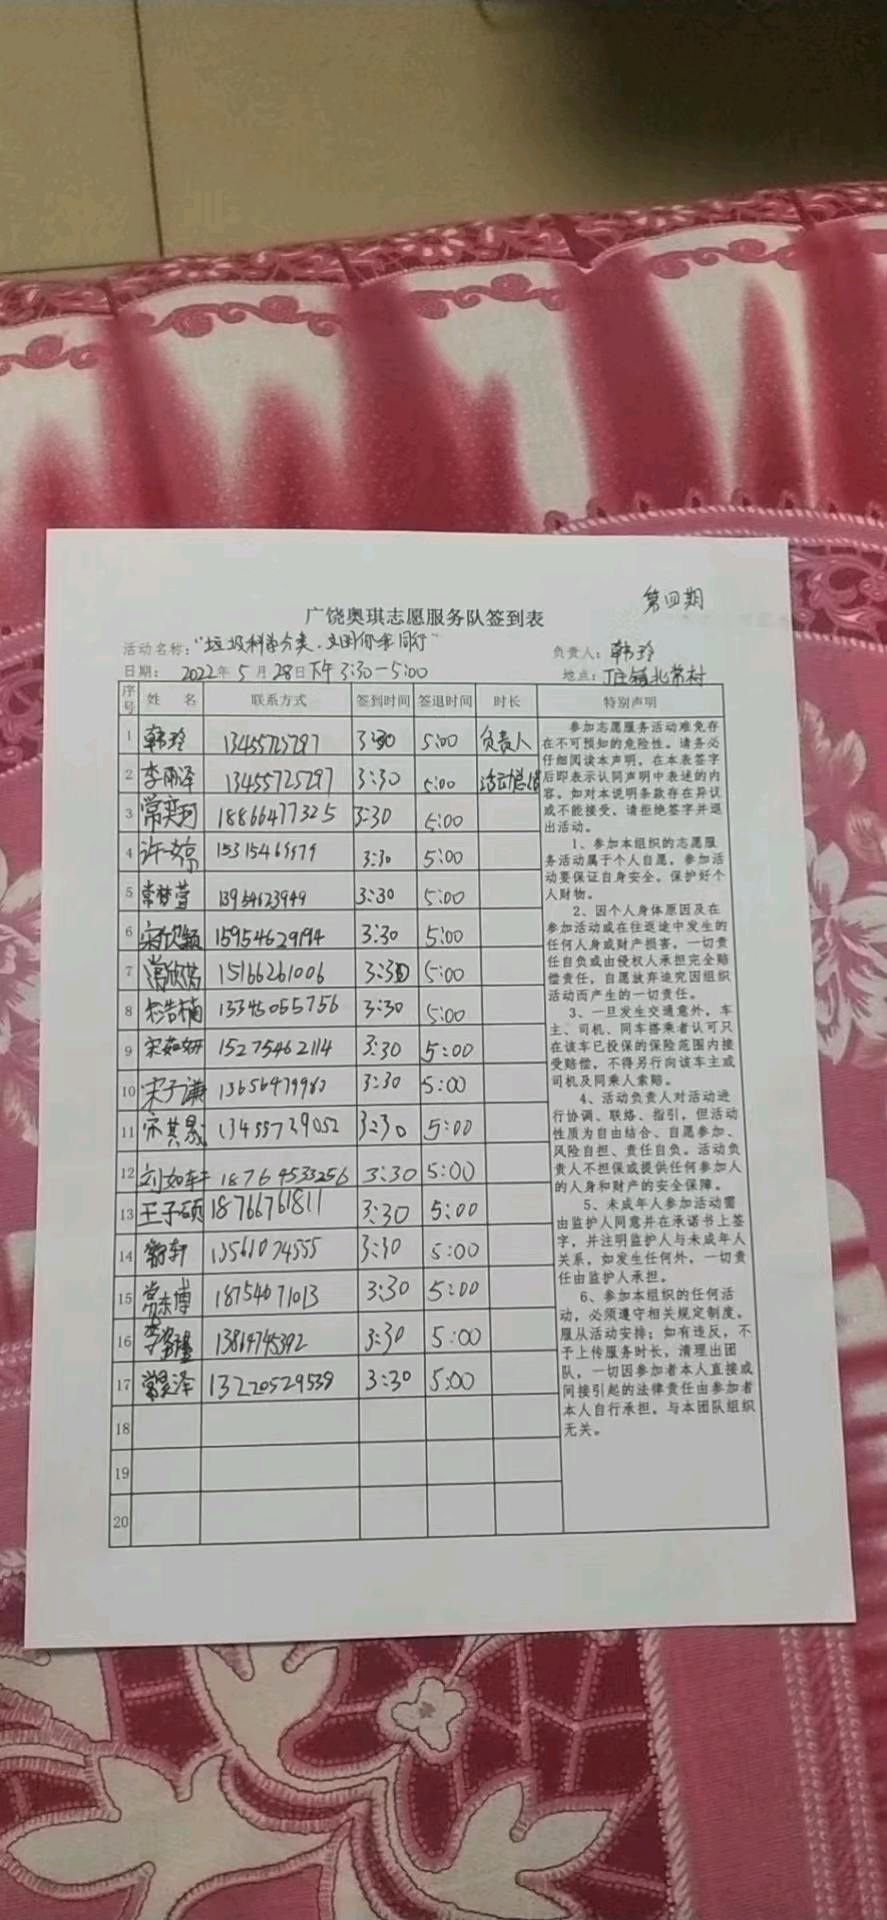 第四期
广饶奥琪志愿服务队签到表
活动名称："垃圾科学分类，文明你我同行"
负责人：韩玲
日期： 2022年 5月 28日下午 3:30-5:00
地点：丁庄镇北常村
序号 姓 名 联系方式 签到时间 签退时间 时长 特别声明
1 韩玲 13455725297 3:30 5:00 负责人
2 李雨泽 13455725297 3:30 5:00
3 常奕珂 18866477325 3:30 5:00
4 3:30 5:00
5 常梦萱 3:30 5:00
6 宋欣颖 15954629194 3:30 5:00
7 15166261006 3:30 5:00
8 3:30 5:00
9 宋茹妍 15275462114 3:30 5:00
10 宋子谦 3:30 5:00
11 宋其晟 13455739052 3:30 5:00
12 刘如轩 18764533256 3:30 5:00
13 王子硕 18766761811 3:30 5:00
14 13561074555 3:30 5:00
15 常东博 18754071013 3:30 5:00
16 3:30 5:00
17 常昊泽 13220529539 3:30 5:00
18
19
20
参加志愿服务活动难免存
在不可预知的危险性。请务必
仔细阅读本声明，在本表签字
后即表示认同声明中表述的内
容。如对本说明条款存在异议
或不能接受，请拒绝签字并退
出活动。
1、参加本组织的志愿服
务活动属于个人自愿，参加活
动要保证自身安全，保护好个
人财物。
2、因个人身体原因及在
参加活动或在往返途中发生的
任何人身或财产损害，一切责
任自负或由侵权人承担完全赔
偿责任，自愿放弃追究因组织
活动而产生的一切责任。
3、一旦发生交通意外，车
主、司机、同车搭乘者认可只
在该车已投保的保险范围内接
受赔偿，不得另行向该车主或
司机及同乘人索赔。
4、活动负责人对活动进
行协调、联络、指引，但活动
性质为自由结合、自愿参加、
风险自担、责任自负。活动负
责人不担保或提供任何参加人
的人身和财产的安全保障。
5、未成年人参加活动需
由监护人同意并在承诺书上签
字，并注明监护人与未成年人
关系，如发生任何外，一切责
任由监护人承担。
6、参加本组织的任何活
动，必须遵守相关规定制度，
服从活动安排；如有违反，不
予上传服务时长，清理出团
队，一切因参加者本人直接或
间接引起的法律责任由参加者
本人自行承担，与本团队组织
无关。